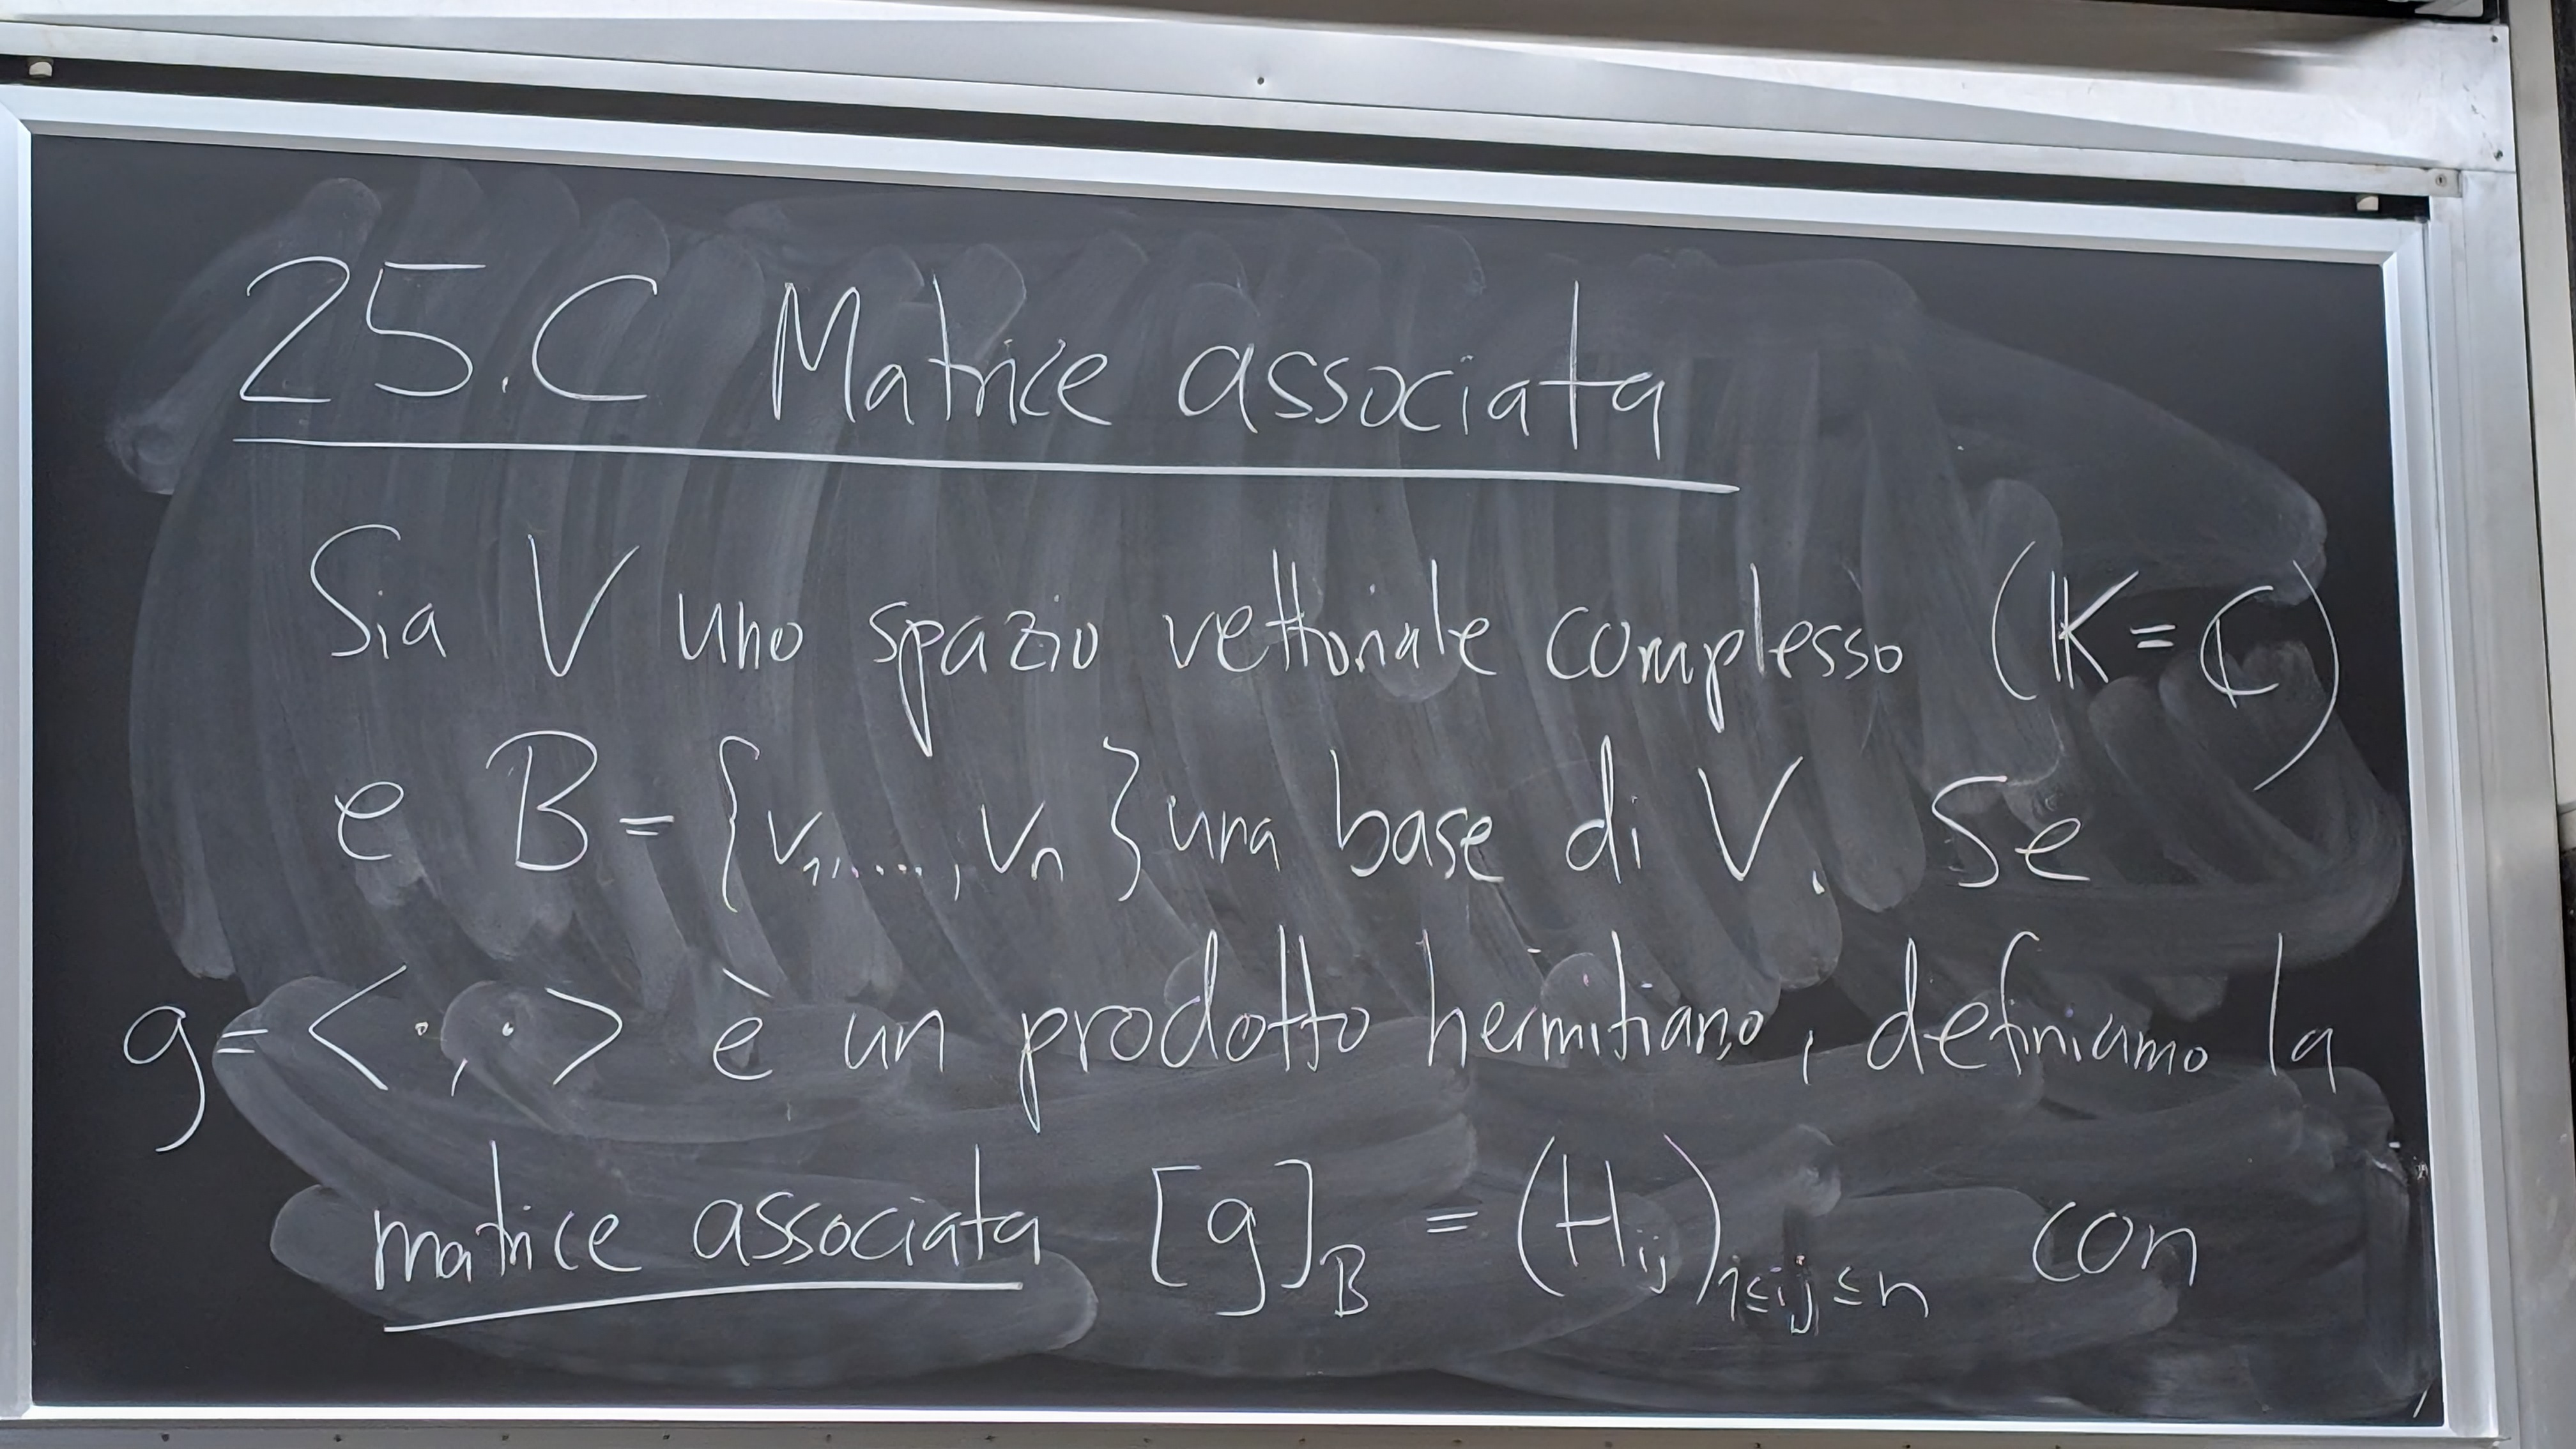 25.C Matrice associata
Sia V uno spazio vettoriale complesso (𝕂=ℂ)
e B={v₁,....,vₙ} una base di V. Se
g=<·,·> è un prodotto hermitiano, definiamo la
matrice associata [g]_B = (H_ij)_1≤i,j≤n con